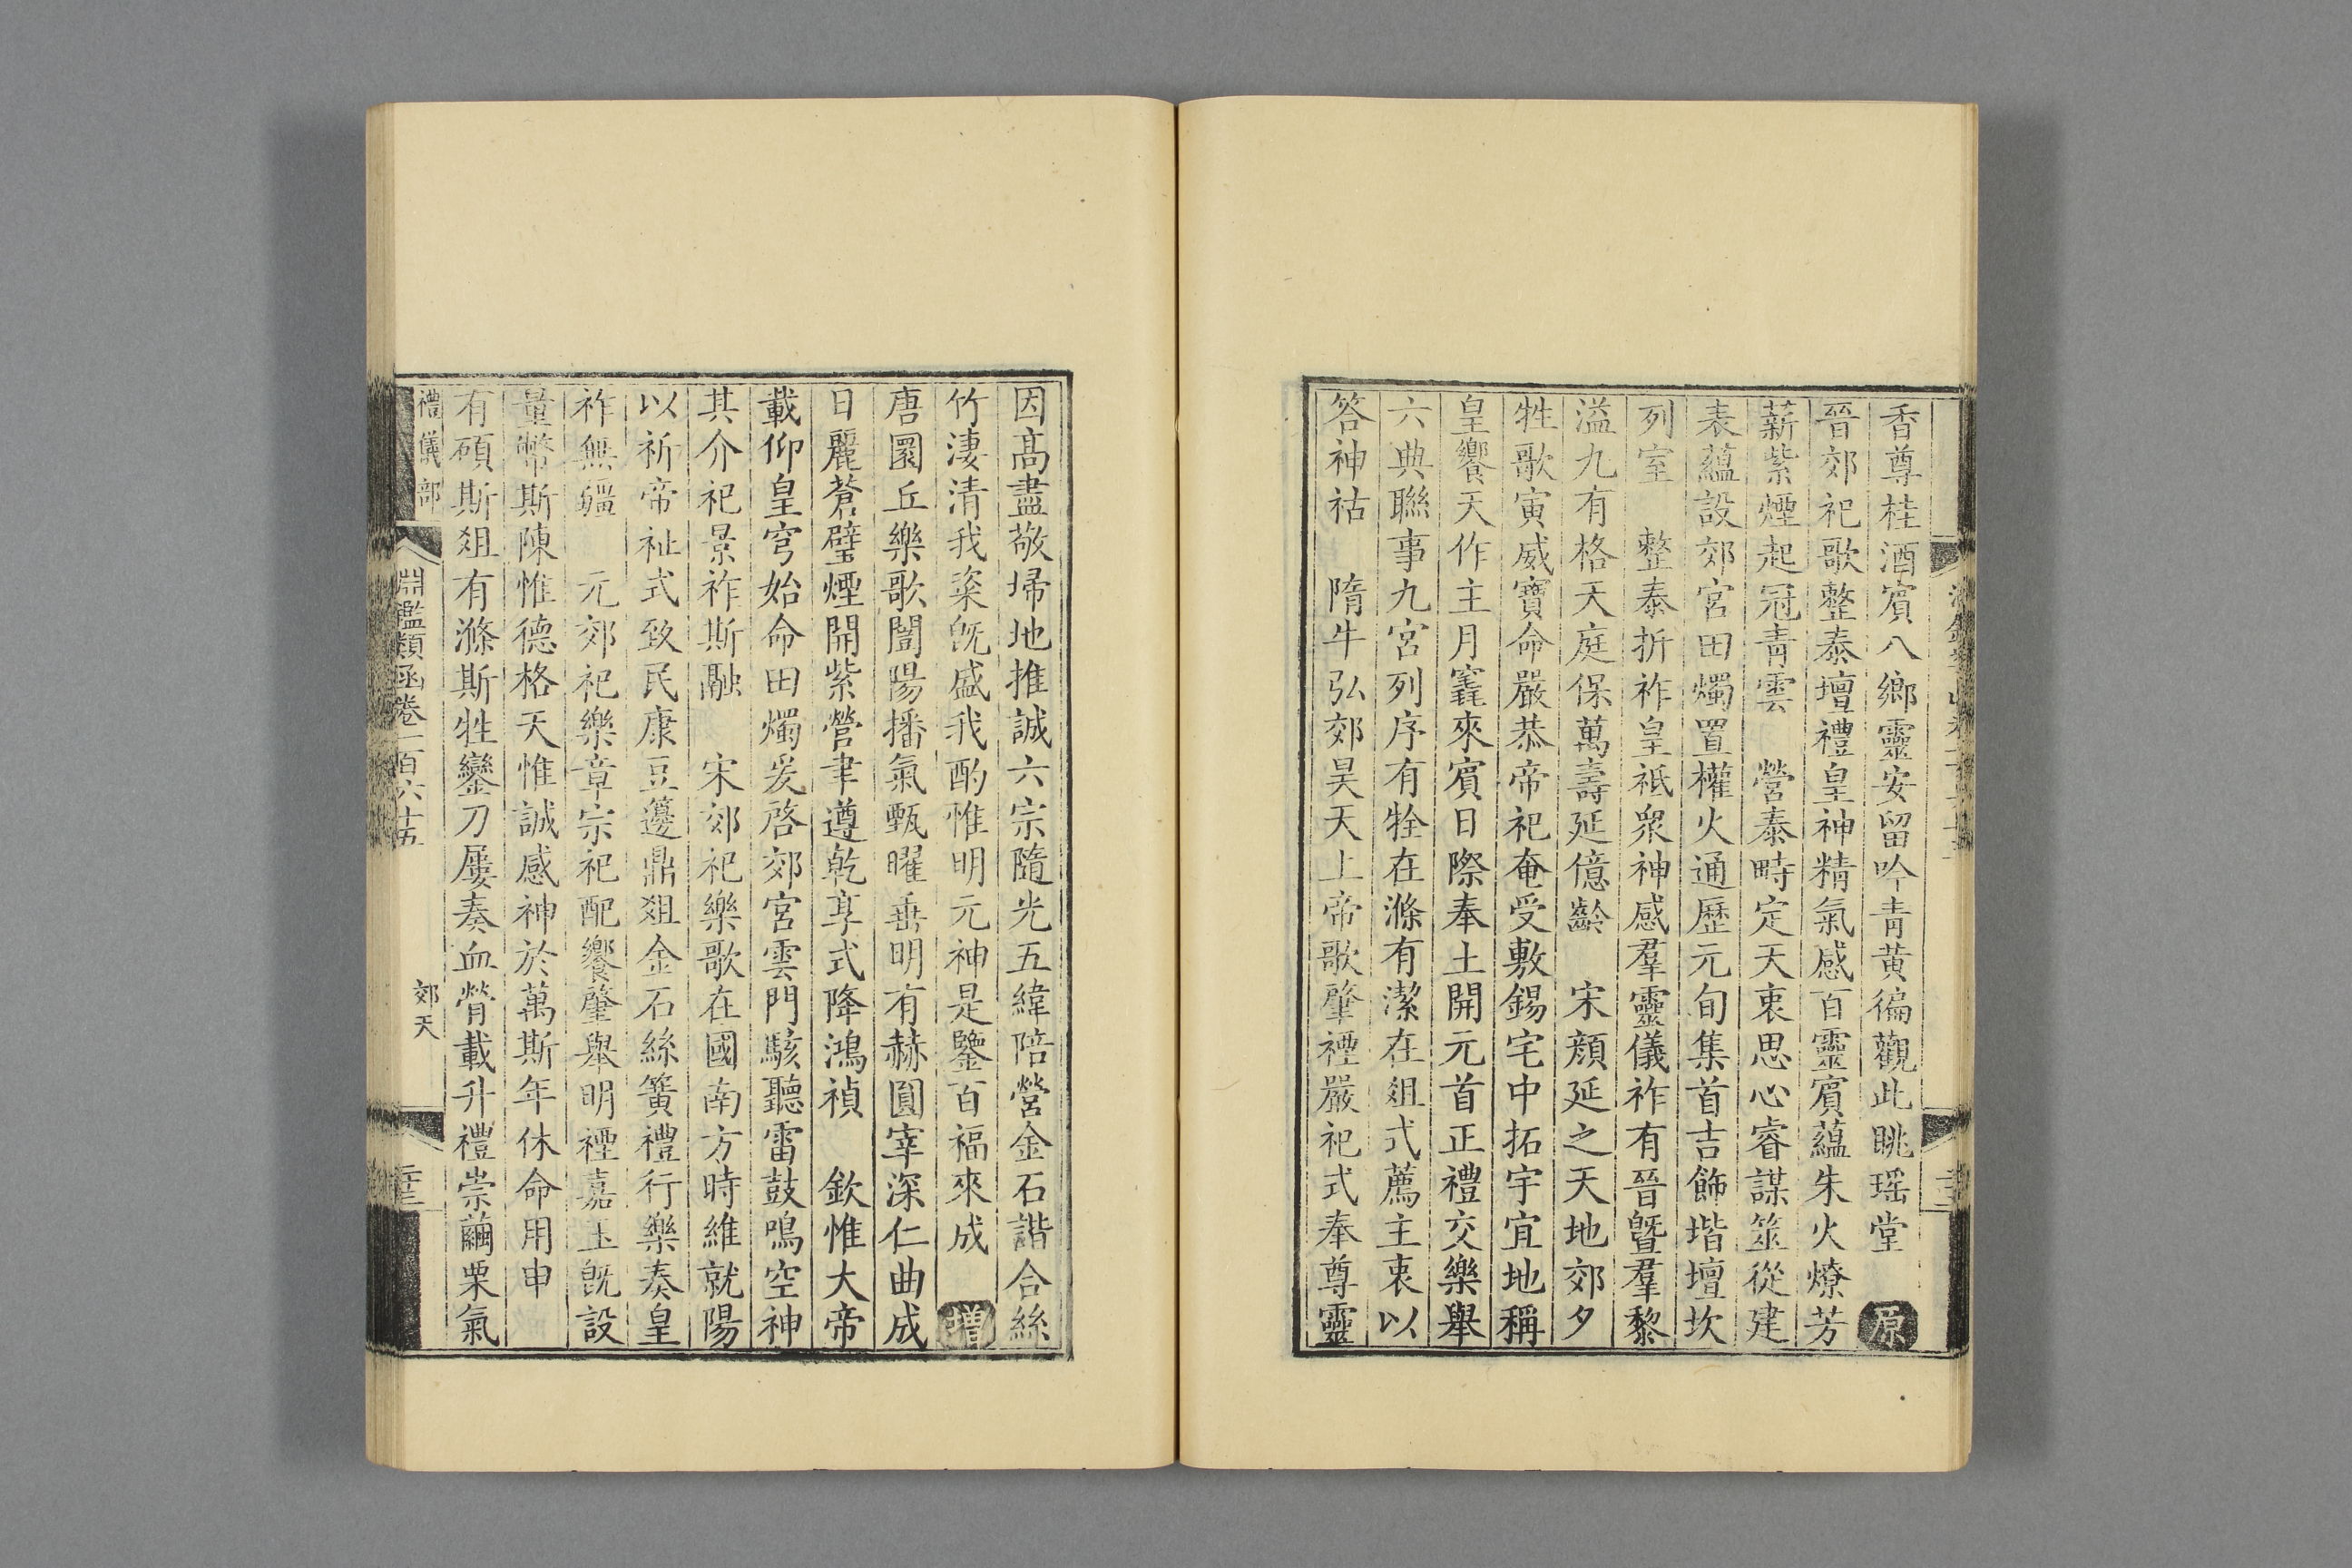 香尊桂酒賓八鄉靈安留吟青黃徧觀此眺瑤堂 原
晉郊祀歌整泰壇禮皇神精氣感百靈賓蘊朱火燎芳
薪紫煙起冠青雲 營泰畤定天衷思心睿謀筮從建
表蘊設郊宮田燭置權火通歷元旬集首吉飾堦壇坎
列室 整泰折祚皇祗眾神感羣靈儀祚有晉曁羣黎
溢九有格天庭保萬壽延億齡 宋顏延之天地郊夕
牲歌寅威寶命嚴恭帝祀奄受敷錫宅中拓宇宜地稱
皇饗天作主月竁來賓日際奉土開元首正禮交樂舉
六典聯事九宮列序有牷在滌有潔在俎式薦主衷以
答神祜 隋牛弘郊昊天上帝歌肇禋嚴祀式奉尊靈
因髙盡敬埽地推誠六宗隨光五緯陪營金石諧合絲
竹淒清我粢旣盛我酌惟明元神是鑒百福來成 增
唐圜丘樂歌闓陽播氣甄曜垂明有赫圓宰深仁曲成
日麗蒼璧煙開紫營聿遵乾享式降鴻禎 欽惟大帝
載仰皇穹始命田燭爰啓郊宮雲門駭聽雷鼓鳴空神
其介祀景祚斯融 宋郊祀樂歌在國南方時維就陽
以祈帝祉式致民康豆籩鼎俎金石絲簧禮行樂奏皇
祚無疆 元郊祀樂章宗祀配饗肇舉明禋嘉玉旣設
量幣斯陳惟德格天惟誠感神於萬斯年休命用申
有碩斯俎有滌斯牲鑾刀屢奏血膋載升禮崇繭栗氣
禮儀部
淵鑑類函卷一百六十五
郊天